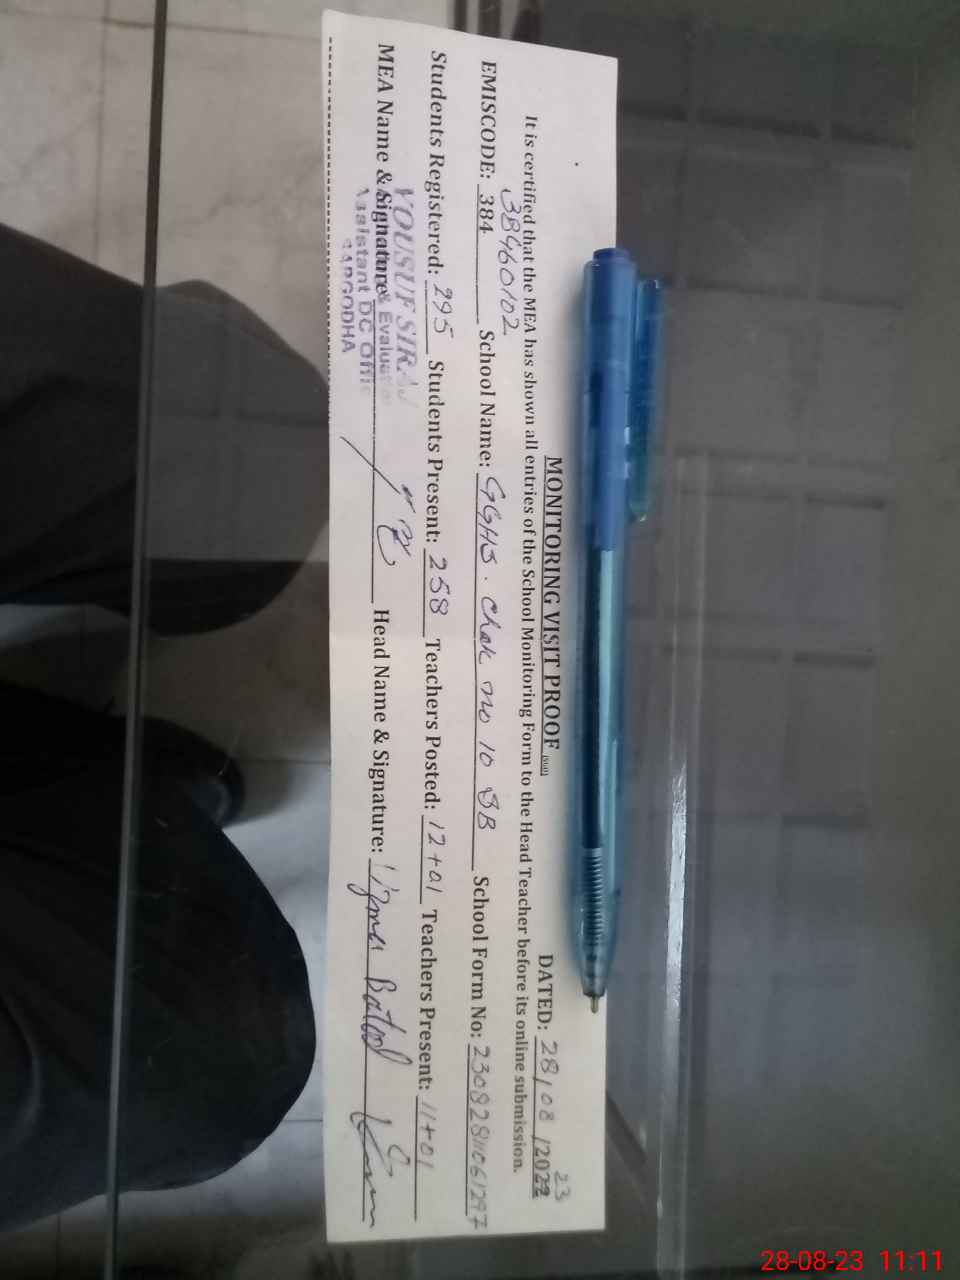 MONITORING VISIT PROOF (Still) DATED: 28/08/2022 23
It is certified that the MEA has shown all entries of the School Monitoring Form to the Head Teacher before its online submission.
38460102
EMISCODE: 384 School Name: GGHS. Chak no 10 SB School Form No:
Students Registered: 295 Students Present: 258 Teachers Posted: 12+01 Teachers Present: 11+01
MEA Name & Signature Head Name & Signature: Uzma Batool
YOUSUF SIRAJ
& Evaluation
Assistant DC Office
SARGODHA
28-08-23 11:11